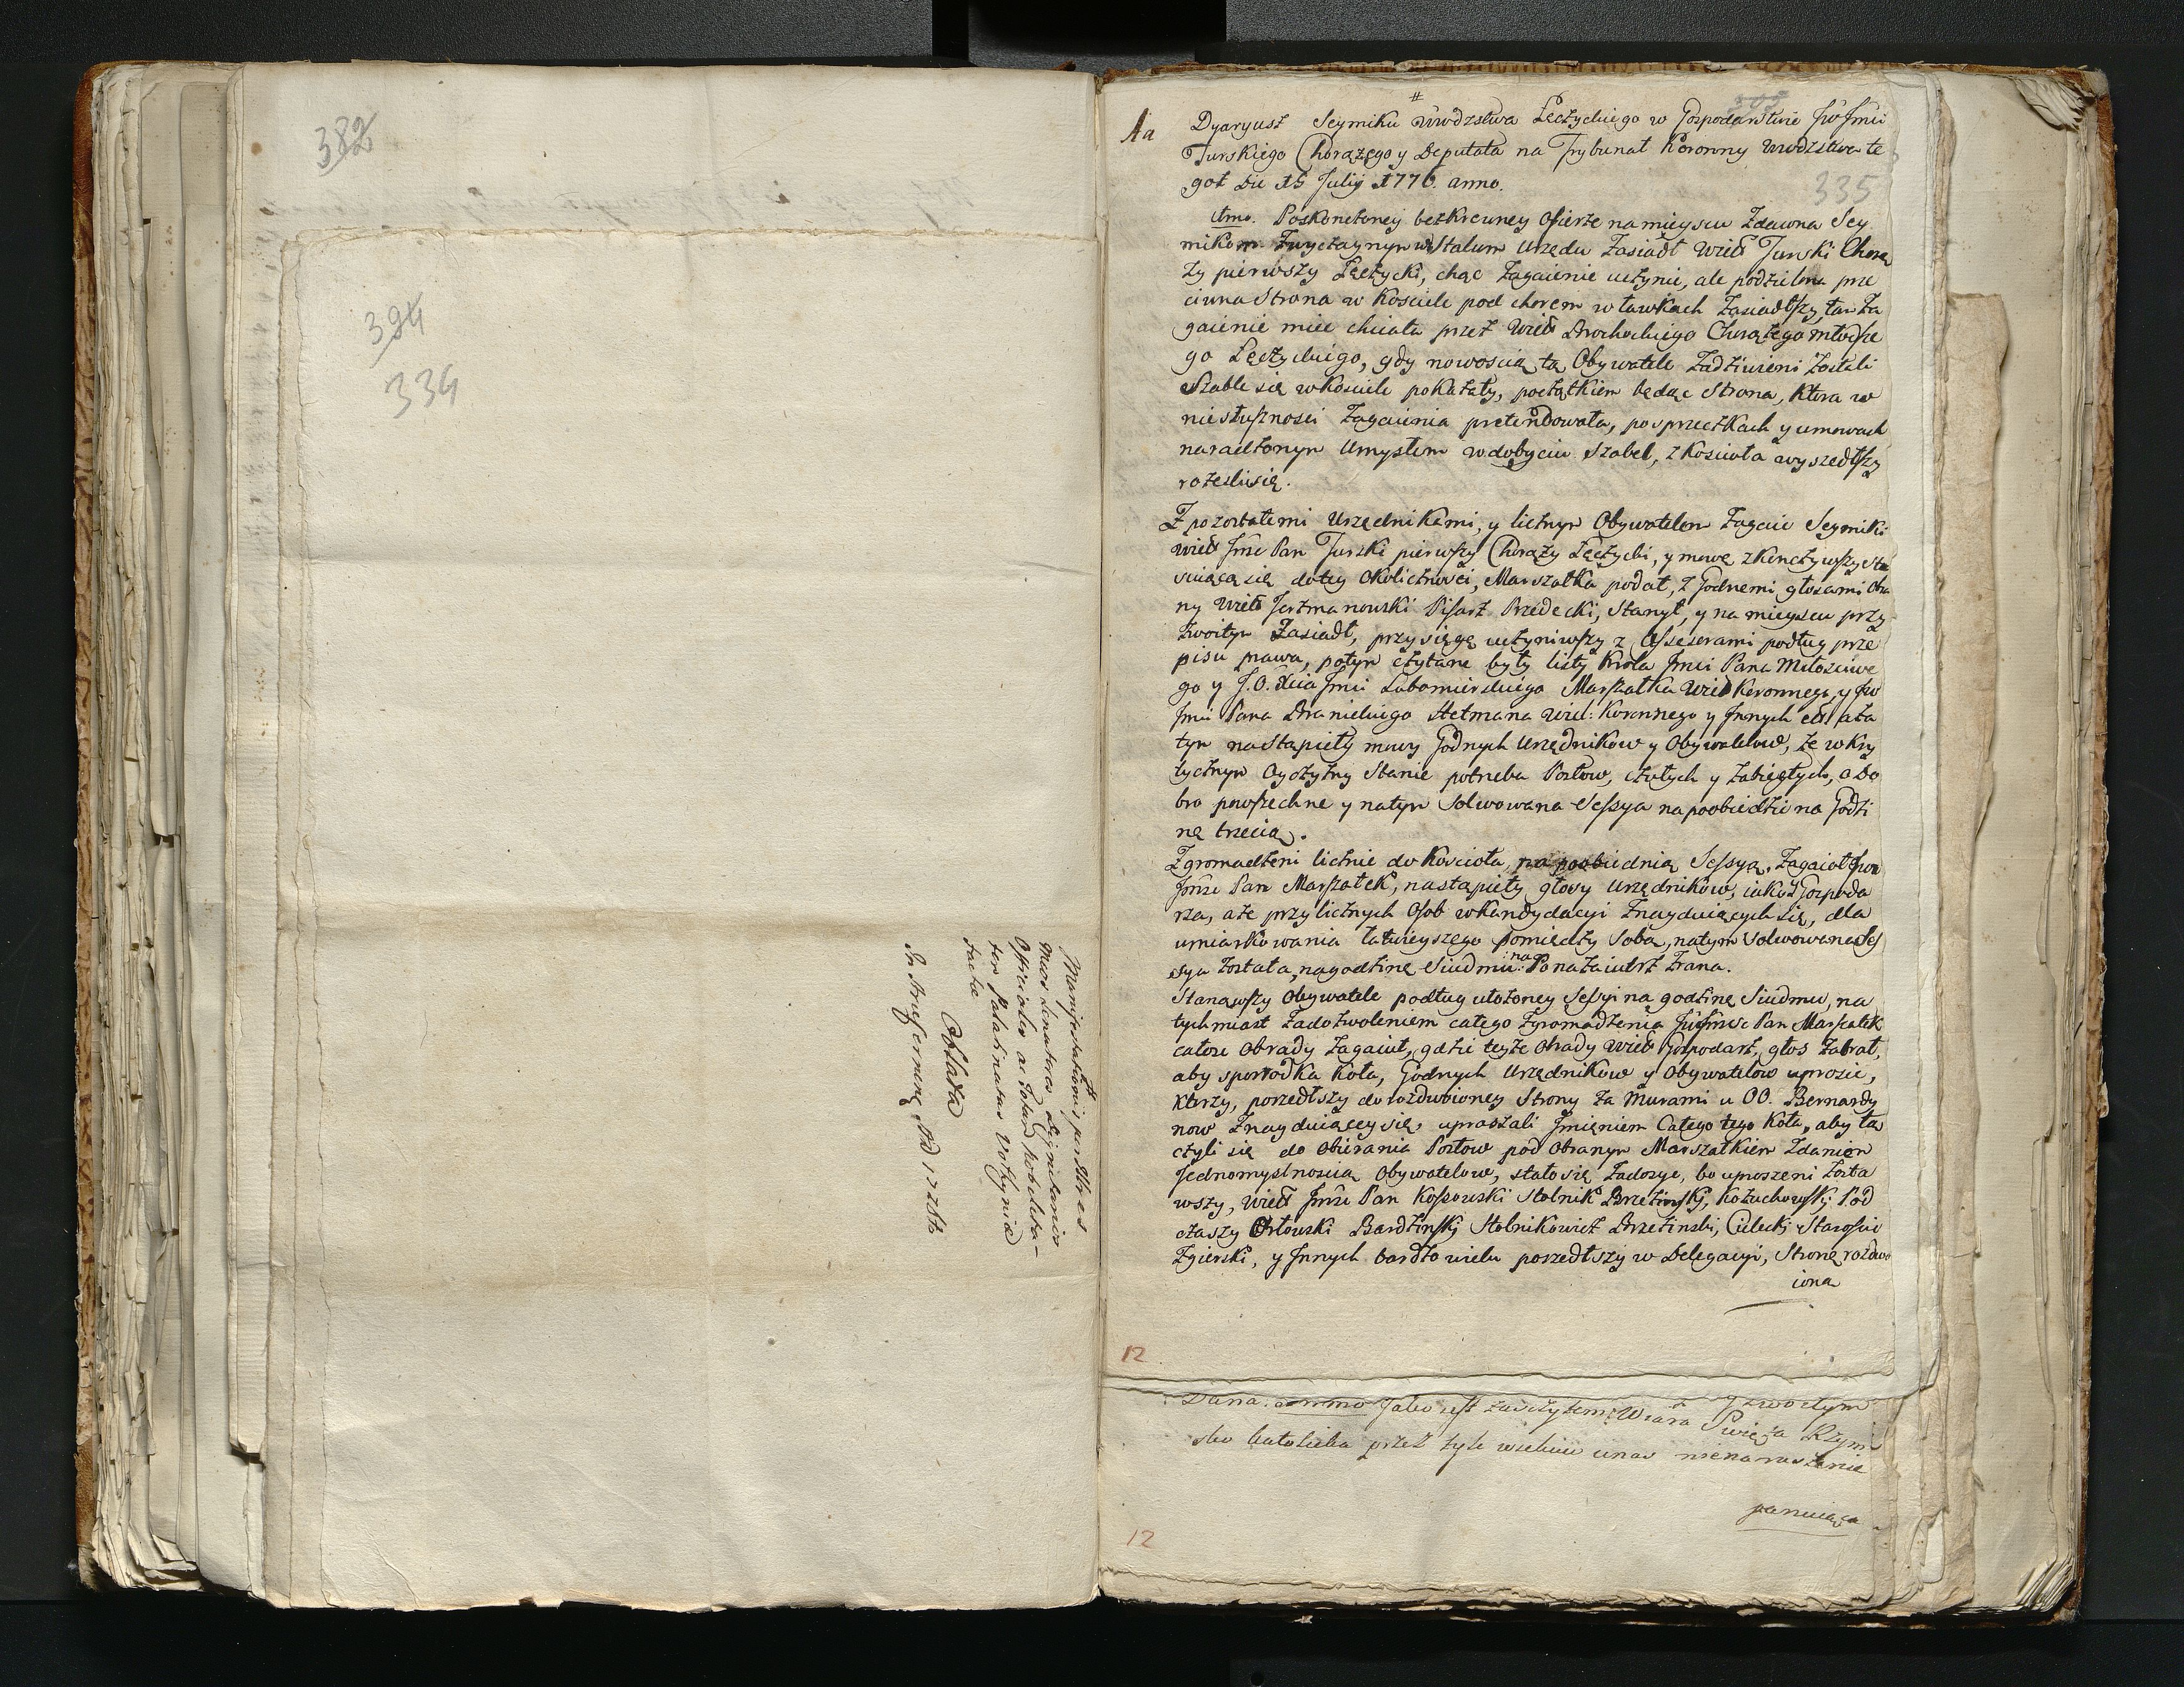 382
384
334
Manifestationis per Illres
Mnos Senatores Dignitarios
Officiales ac totum nobilita-
tem Palatinatus Volhyniae
factae
Oblata
335
Aa
Dyaryusz Seymiku Wwdzstwa Łęczyckiego w Gospodarstwie
Turskiego Chorążego y Deputata na Trybunał Koronny Wwdzstwa te
goż Die 15 Julij 1776. anno.
1mo. Po skończoney bezkrewney Ofierze na mieyscu zdawna Sey
mikom zwyczaynym w Stalum Urzędu zasiadł Wiel Turski Chorą
ży pierwszy Łęczycki, chąc zagaienie uczynic, ale podzielona prze
ciwna Strona w Kosciele pod chorem w ławkach zasiadłszy, tam za
gaienie miec chciała przez Wiel Chorążego młodsze
go Łęczyckiego, gdy nowoscią tą Obywatele zadziwieni zostali
Szable się w Kosciele pokazały, początkiem będąc Strona, ktora w
niesłusznosci zagaienia pretendowała, po sprzeczkach y umowach
naradzonym Umysłem w dobyciu Szabel, z Koscioła wyszedłszy
rozeszli się.
Z pozostałemi Urzędnikami, y licznym Obywatelem zagaił Seymiki
Wiel Jmc Pan Turski pierwszy Chorąży Łęczycki, y mowę zkonczywszy sto
suiącą się do tey Okolicznosci, Marszałka podał, z Godnemi głosami Obra
ny Wiel Jerzmanowski Pisarz Przedecki, Stanął, y na mieyscu przy
zwoitym zasiadł, przysięgę uczyniwszy z Assesorami podług prze
pisu prawa, potym czytane były listy Krola Jmci Pana Miłosciwe
go y J.O. Xcia Jmci Lubomirskiego Marszałka Wiel Koronnego, y JW
Jmci Pana Branickiego Hetmana Wiel: Koronnego y Jnnych etc. a za
tym nastąpiły mowy Godnych Urzędnikow y Obywatelow, że w Kry
tycznym Oyczyzny Stanie potrzeba Posłow, czułych y zabiegłych, o Do
bro powszechne y natym Solwowana Sessya na poobiedzie na Godzi
nę trzecią.
Zgromadzeni licznie do Koscioła, na poobiednią Sessyą, zagaił JWn
Jmc Pan Marszałek, nastąpiły głosy Urzędnikow, iako y Gospoda
rza, a że przy licznych Osob w Kandydacyi znayduiących się, dla
umiarkowania łatwieyszego pomiędzy Sobą, natym Solwowana Ses
sya została, na godzinę Siudmą na Ponazaiutrz zrana.
Stanąwszy Obywatele podług ułożoney Sessyi na godzinę Siudmą, na
tychmiast za dozwoleniem całego zgromadzenia JW Jmc Pan Marszałek
całoze Obrady zagaiał, gdzie teyże Obrady Wiel Gospodarz, głos zabrał,
aby sporzodka Koła, Godnych Urzędnikow y Obywatelow uprosic,
ktorzy, poszedłszy do rozdwoioney Strony za Murami u OO. Bernardy
now znayduiącey się, upraszali Jmieniem Całego tego Koła, aby łą
czyli się do Obierania Posłow pod Obranym Marszałkiem zdaniem
Jednomyslnoscią Obywatelow, stało się zadosyc, bo uproszeni zosta
wszy, Wiel Jmc Pan Kossowski Stolnik Brzezinski, Kożuchowski Pod
czaszy Orłowski Bardzinski Stolnikowicz Brzezinski, Cielecki Staroscic
Zgierski, y Jnnych bardzo wielu poszedłszy w Delegacyi, Stronę rozdwo
iona
12
Dana. ammo Jako iest zaszczytem Wiara Swięta Rzym
sko katolicka przez tyle wiekow unas nienaruszenie
panuiąca
12